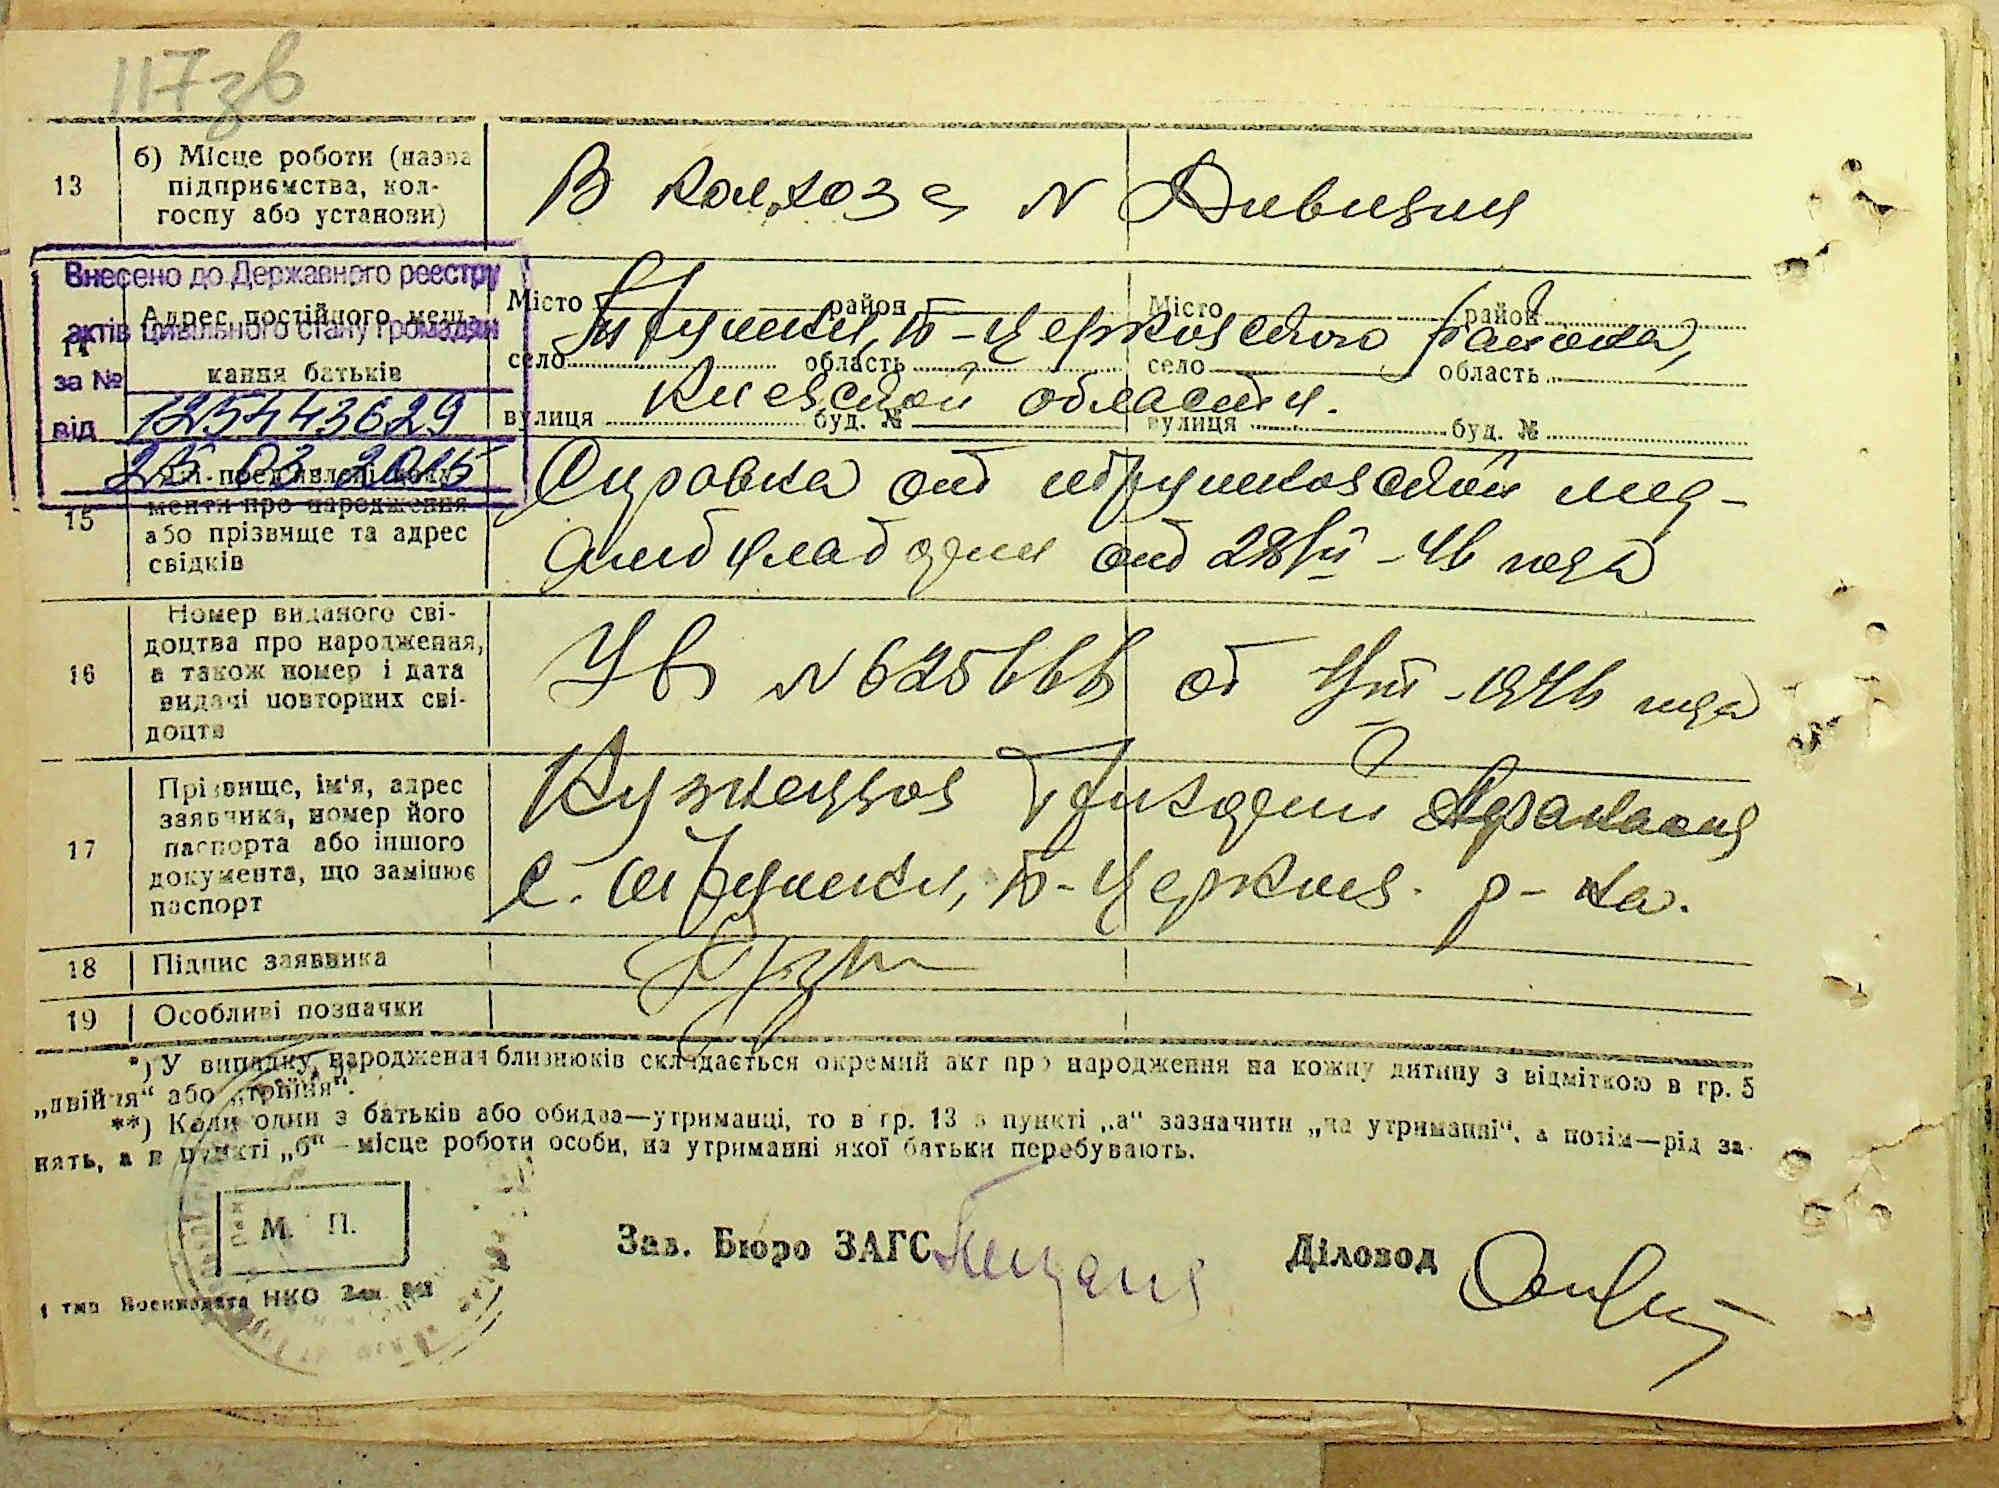 117зв
13
б) Місце роботи (назва
підприємства, кол-
госпу або установи)
В колхозе N Дивизия
Внесено до Державного реєстру
актів цивільного стану громадян
за №
від 125443629
25 03 2015
14
Адрес постійного меш-
кання батьків
Місто район Місто район
село область село область
вулиця буд. № вулиця буд. №
Трушки, Б-Церковского района,
Киевской области.
15
Які пред'явлені доку-
менти про народження
або прізвище та адрес
свідків
Справка от Трушковской мед-
амбулатории от 28/VII-46 года
16
Номер виданого сві-
доцтва про народження,
а також номер і дата
видачі повторних сві-
доцтв
N 625666 от -1946 года
17
Прізвище, ім'я, адрес
заявника, номер його
паспорта або іншого
документа, що замінює
паспорт
Кузнецов Афанасия
с. Трушки, Б-Церков. р-на.
18
Підпис заявника
19
Особливі позначки
*) У випадку, народження близнюків складається окремий акт про народження на кожну дитину з відміткою в гр. 5
„двійня“ або „трійня“.
**) Коли один з батьків або обидва—утриманці, то в гр. 13 в пункті „а“ зазначити „на утриманні“, а потім—рід за-
нять, а в пункті „б“—місце роботи особи, на утриманні якої батьки перебувають.
М. П.
Зав. Бюро ЗАГС
Діловод
1 тип Воениздата НКО Зак.